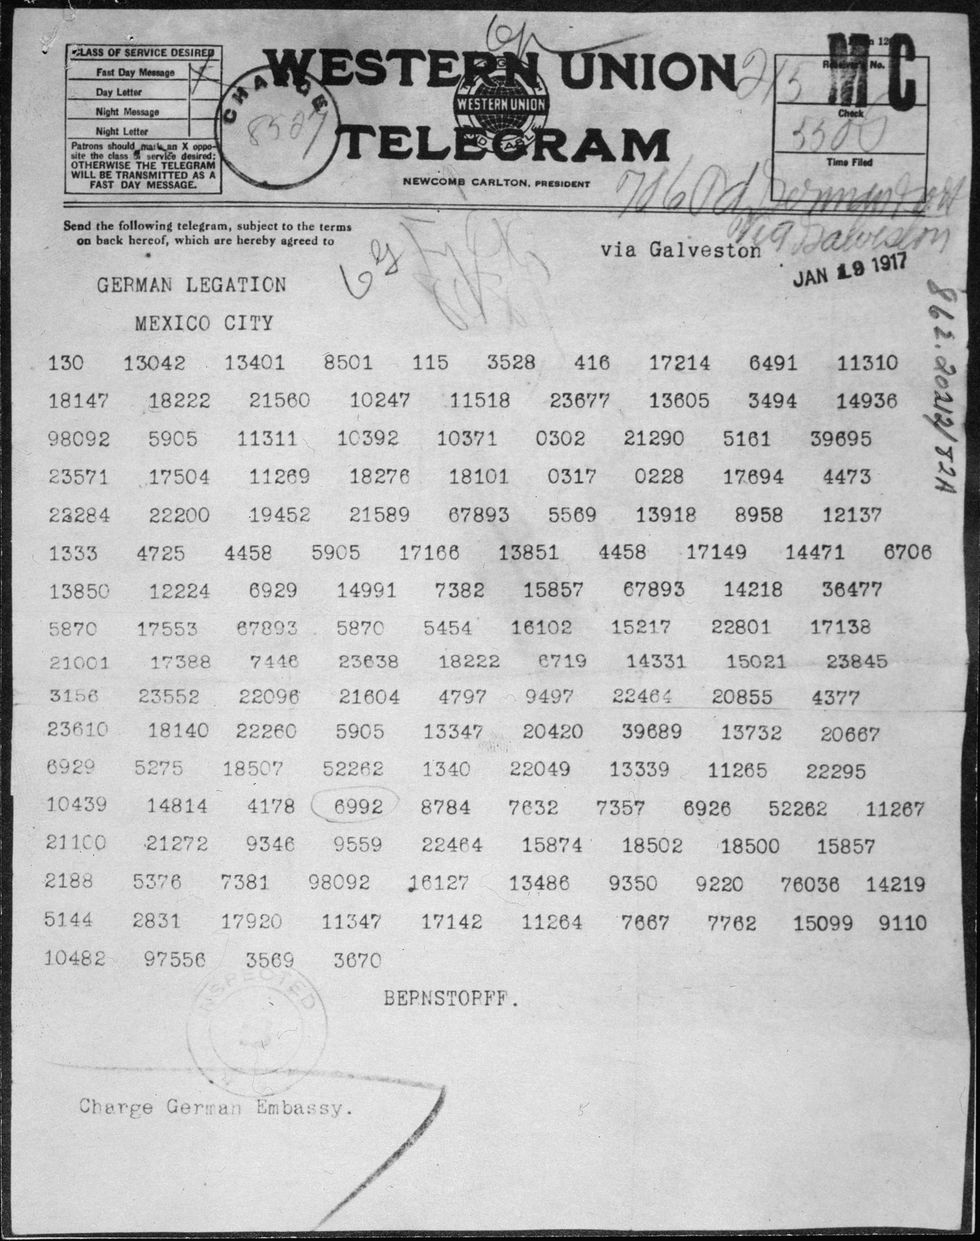 CLASS OF SERVICE DESIRED
Fast Day Message
Day Letter
Night Message
Night Letter
Patrons should mark an X oppo-
site the class of service desired;
OTHERWISE THE TELEGRAM
WILL BE TRANSMITTED AS A
FAST DAY MESSAGE.
CHARGE
WESTERN UNION
WESTERN UNION
TELEGRAM
NEWCOMB CARLTON, PRESIDENT
MC
Receiver's No.
Check
Time Filed
215
Send the following telegram, subject to the terms
on back hereof, which are hereby agreed to
via Galveston
via Galveston
JAN 19 1917
GERMAN LEGATION
MEXICO CITY
862.20212/82A
130 13042 13401 8501 115 3528 416 17214 6491 11310
18147 18222 21560 10247 11518 23677 13605 3494 14936
98092 5905 11311 10392 10371 0302 21290 5161 39695
23571 17504 11269 18276 18101 0317 0228 17694 4473
22284 22200 19452 21589 67893 5569 13918 8958 12137
1333 4725 4458 5905 17166 13851 4458 17149 14471 6706
13850 12224 6929 14991 7382 15857 67893 14218 36477
5870 17553 67893 5870 5454 16102 15217 22801 17138
21001 17388 7446 23638 18222 6719 14331 15021 23845
3156 23552 22096 21604 4797 9497 22464 20855 4377
23610 18140 22260 5905 13347 20420 39689 13732 20667
6929 5275 18507 52262 1340 22049 13339 11265 22295
10439 14814 4178 6992 8784 7632 7357 6926 52262 11267
21100 21272 9346 9559 22464 15874 18502 18500 15857
2188 5376 7381 98092 16127 13486 9350 9220 76036 14219
5144 2831 17920 11347 17142 11264 7667 7762 15099 9110
10482 97556 3569 3670
BERNSTORFF.
INSPECTED
Charge German Embassy.